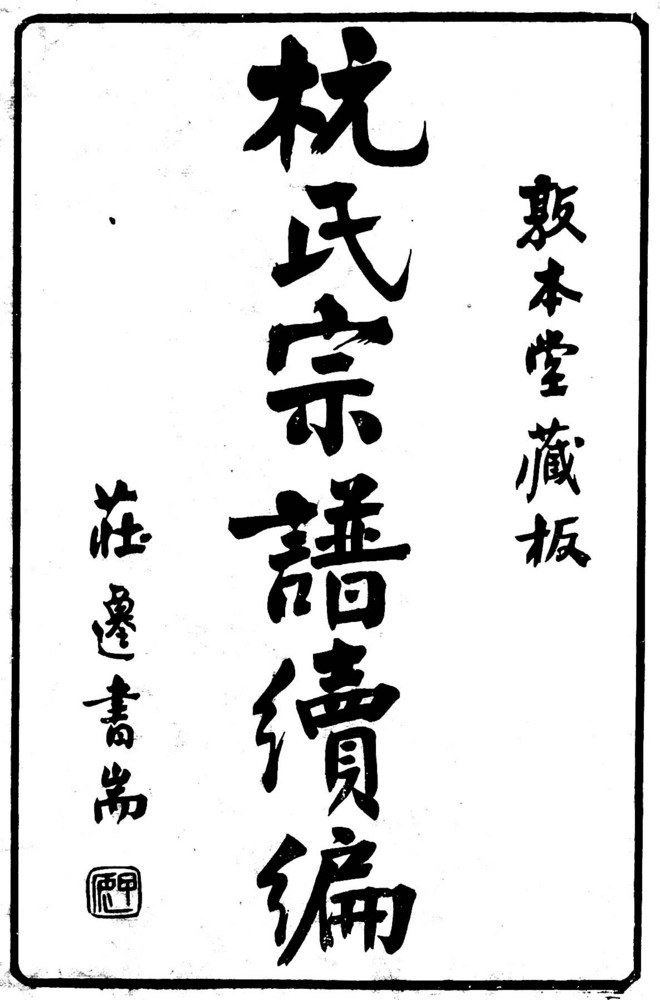 敦本堂藏板
杭氏宗譜續編
莊書耑